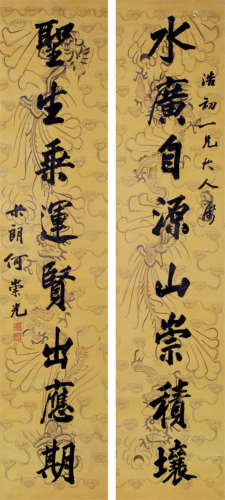 浩初一兄大人屬
水廣自源山崇積壤
聖生乘運賢出應期
朗何崇光